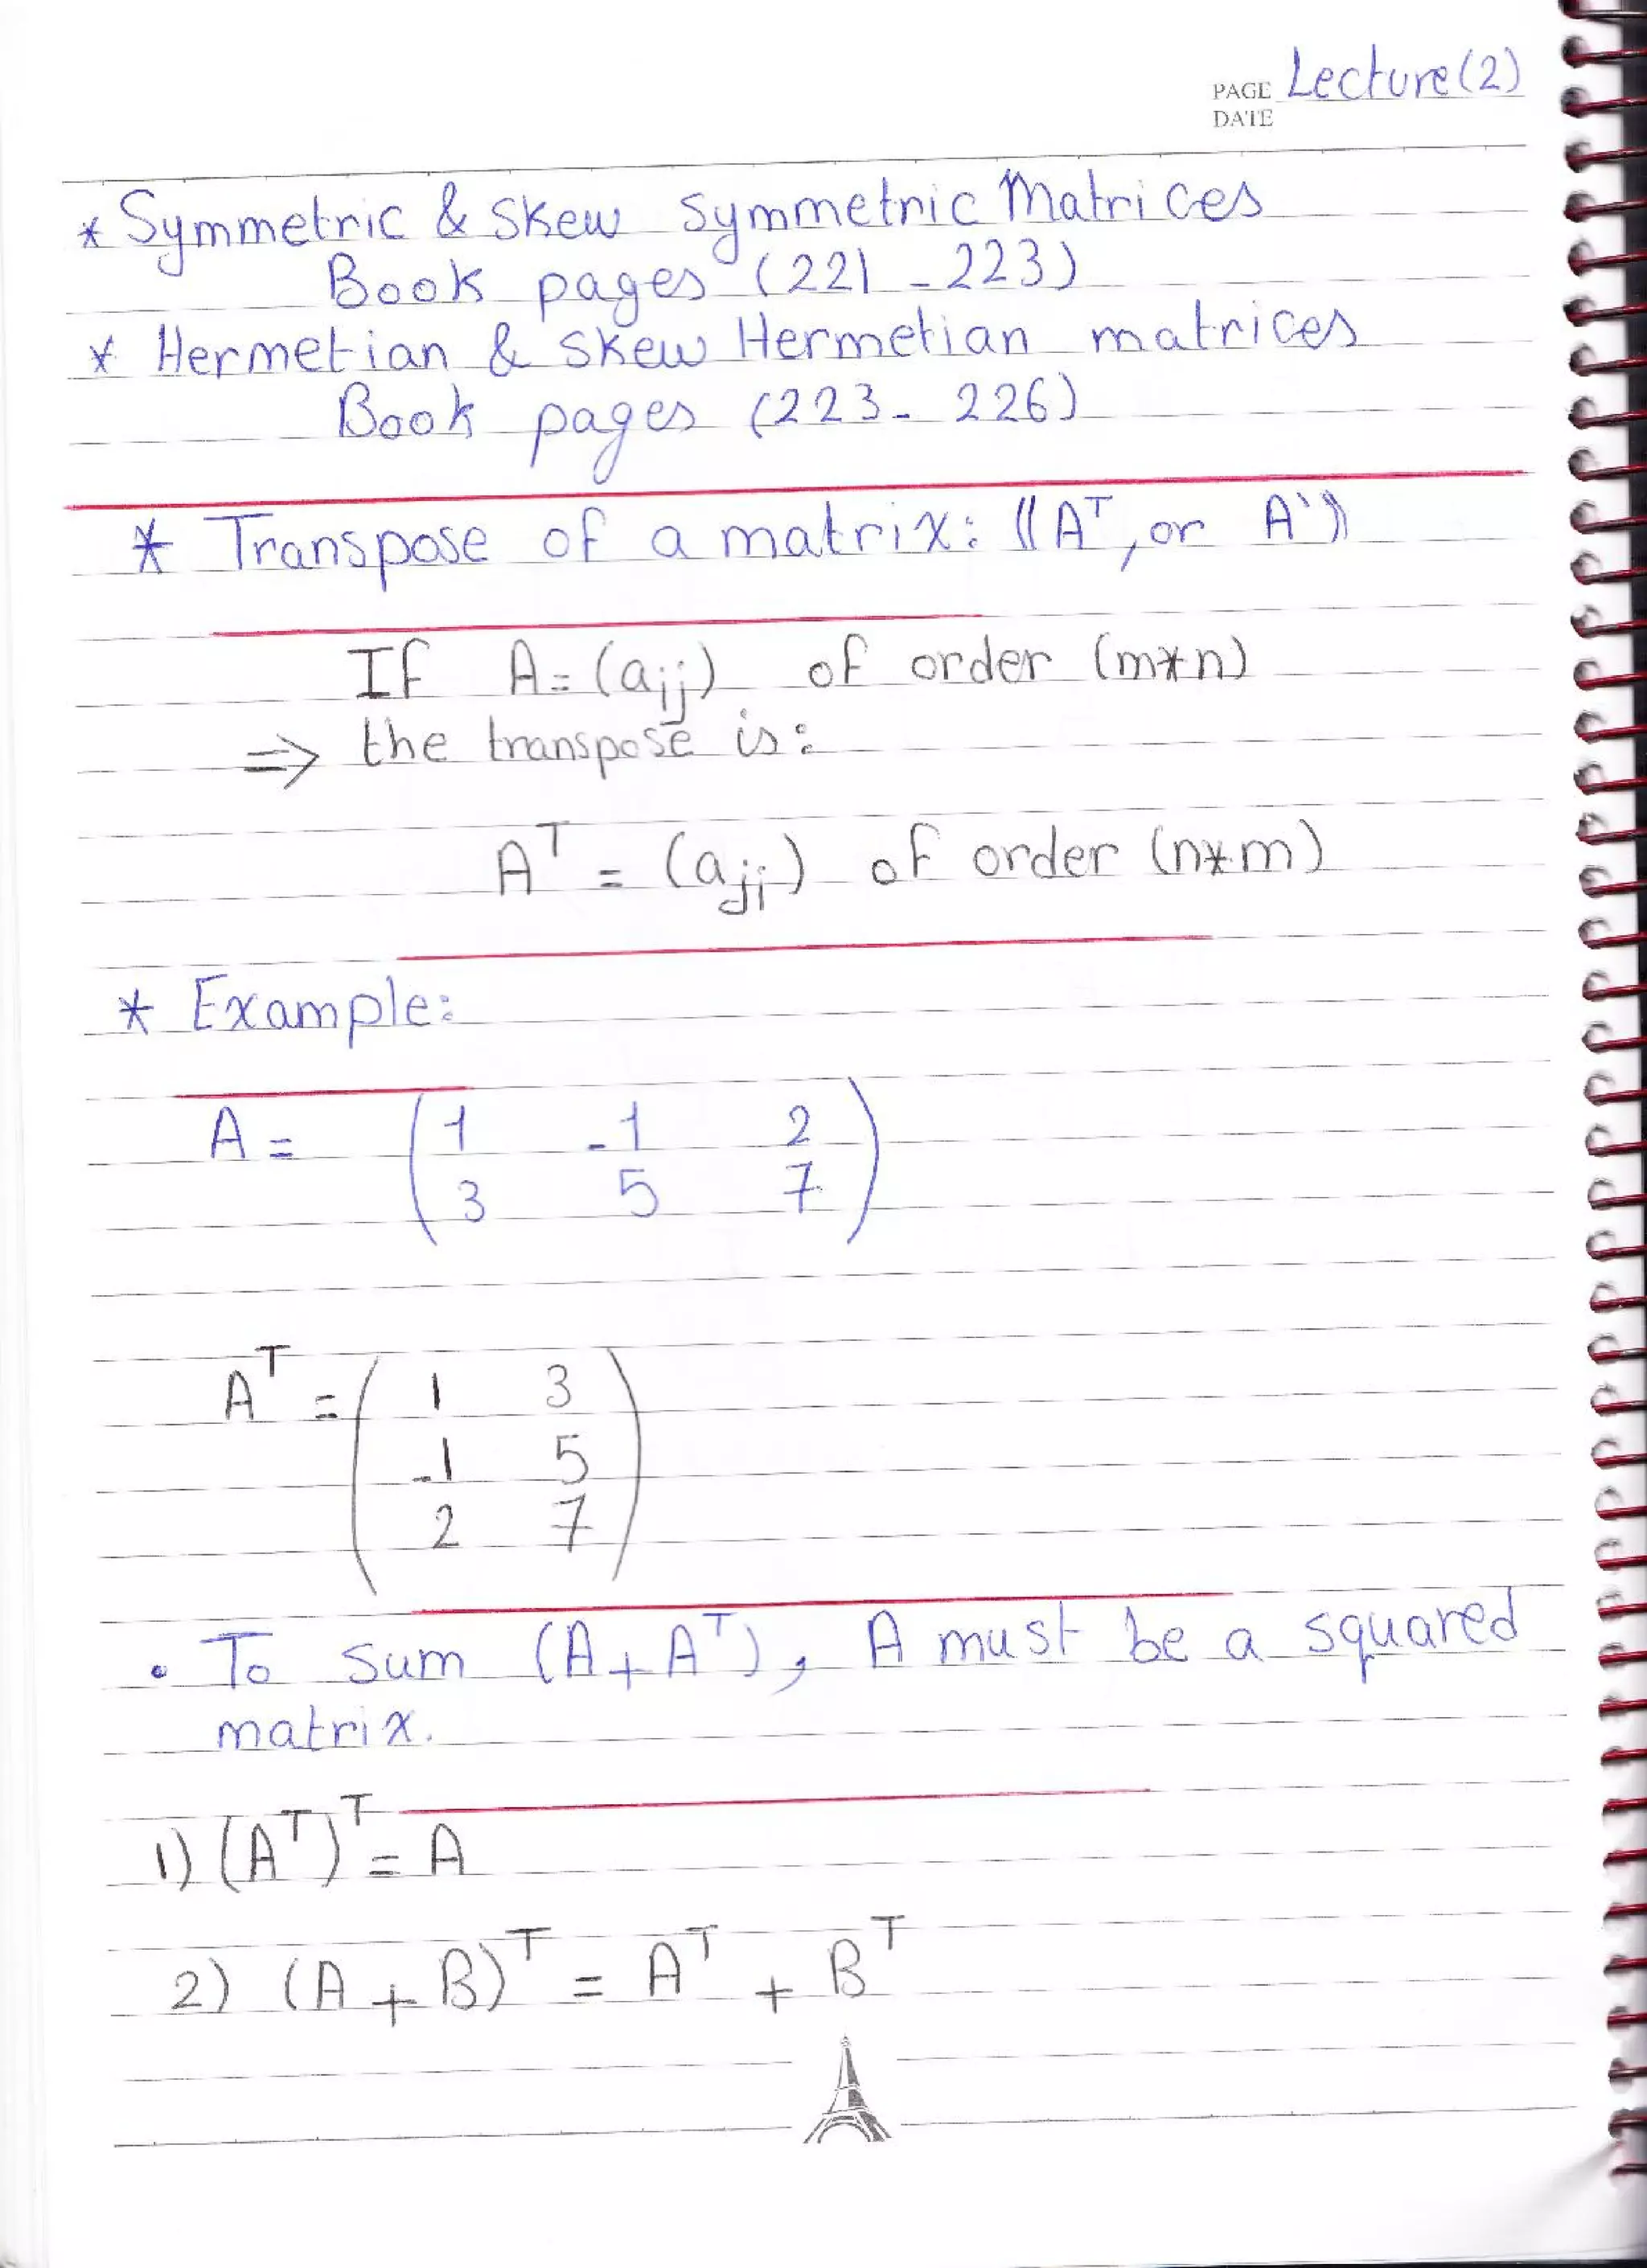 PAGE Lecture(2)
DATE
* Symmetric & Skew Symmetric Matrices
Book pages (221 - 223)
* Hermetian & Skew Hermetian matrices
Book pages (223 - 226)
* Transpose of a matrix: ((Aᵀ, or A`))
If A = (aij) of order (m*n)
⇒ the transpose is:
Aᵀ = (aji) of order (n*m)
* Example:
A = ( 1 -1 2
3 5 7 )
Aᵀ = ( 1 3
-1 5
2 7 )
• To sum (A + Aᵀ), A must be a squared
matrix.
1) (Aᵀ)ᵀ = A
2) (A + B)ᵀ = Aᵀ + Bᵀ